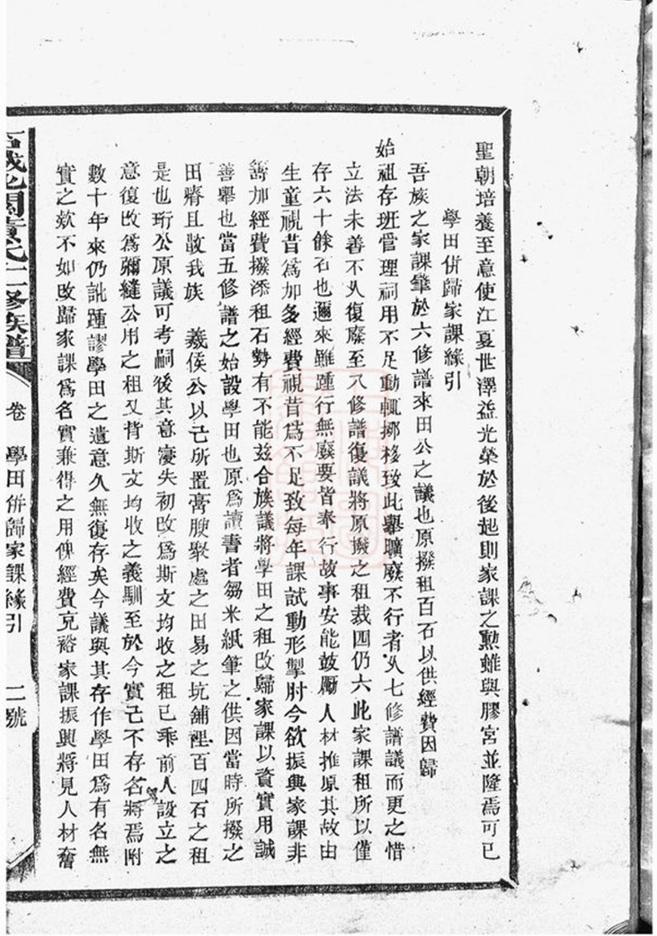 聖朝培養至意使江夏世澤益光榮於後起則家課之勲雖與膠宮並隆焉可已
學田併歸家課緣引
吾族之家課肇於六修譜來田公之議也原撥租百石以供經費因歸
始祖存班管理祠用不足動輒挪移致此舉曠廢不行者久七修譜議而更之惜
立法未善不久復廢至八修譜復議將原撥之租裁四仍六此家課租所以僅
存六十餘石也邇來雖踵行無廢要皆奉行故事安能鼓勵人材推原其故由
生童視昔為加多經費視昔為不足致每年課試動形掣肘今欲振興家課非
籌加經費撥添租石勢有不能兹合族議將學田之租改歸家課以資實用誠
善舉也當五修譜之始設學田也原為讀書者芻米紙筆之供因當時所撥之
田瘠且 我族 羲侯公以己所置膏腴聚處之田易之坑舖裡百四石之租
是也珩公原議可考嗣後其意寖失初改為斯文均收之租已乖前人設立之
意復改為彌縫公用之租又背斯文均收之義馴至於今實已不存名將焉附
數十年來仍訛踵謬學田之遺意久無復存矣今議與其存作學田為有名無
實之欵不如改歸家課為名實兼得之用俾經費充裕家課振興將見人材奮
黃氏 修族譜
卷
學田併歸家課緣引
二號